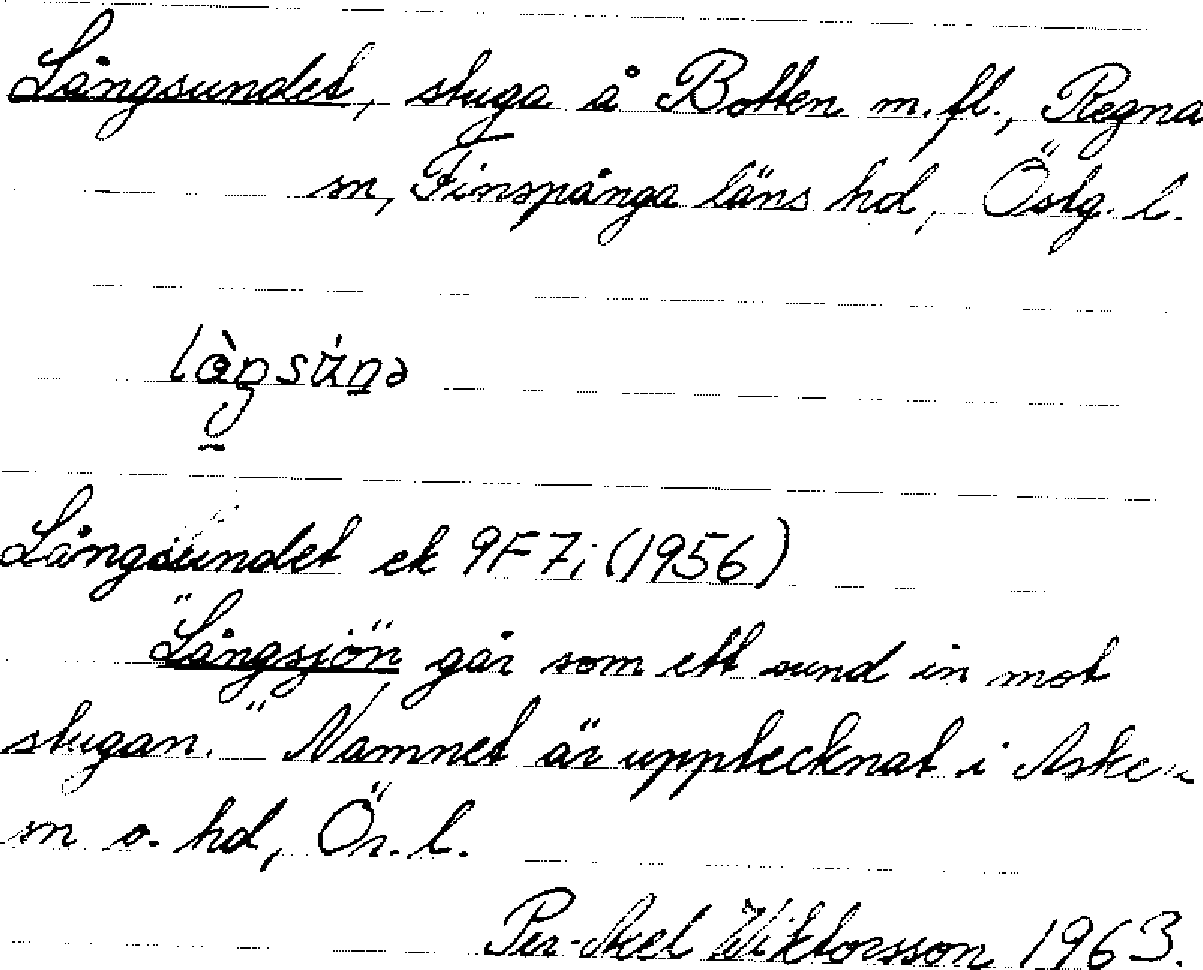 Långsundet, stuga å Botten m.fl., Regna
sn, Finspånga läns hd, Östg. l.
Långsundet ek 9F7i (1956)
"Långsjön går som ett sund in mot
stugan." Namnet är upptecknat i
sn o. hd, Ör. l.
Per-Axel Wiktorsson 1963.